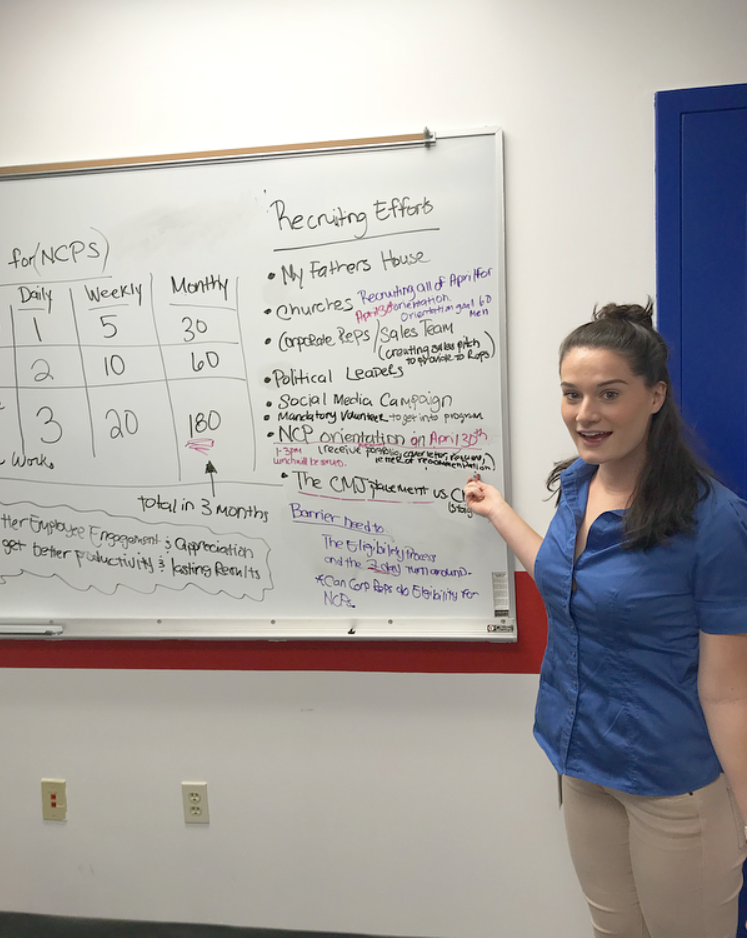 for (NCPS)
Daily Weekly Monthly
1 5 30
2 10 60
3 20 180
Works
total in 3 months
tter Employee Engagement & Appreciation
get better productivity & lasting Results
Recruiting Efforts
• My Fathers House
• Churches Recruiting all of April for
April 30 orientation
Orientation goal 60
Men
• Corporate Reps / Sales Team
(creating sales pitch
to provide to Reps)
• Political Leaders
• Social Media Campaign
• Mandatory Volunteer to get into program
• NCP orientation on April 30th
1-3pm (receive portfolio, cover letter, resume,
lunch will be served. letter of recommendation)
• The CMJ placement vs. C
Barrier need to
The Eligibility Process
and the 3 day turn around.
*Can Corp Reps do Eligibility for
NCPs.